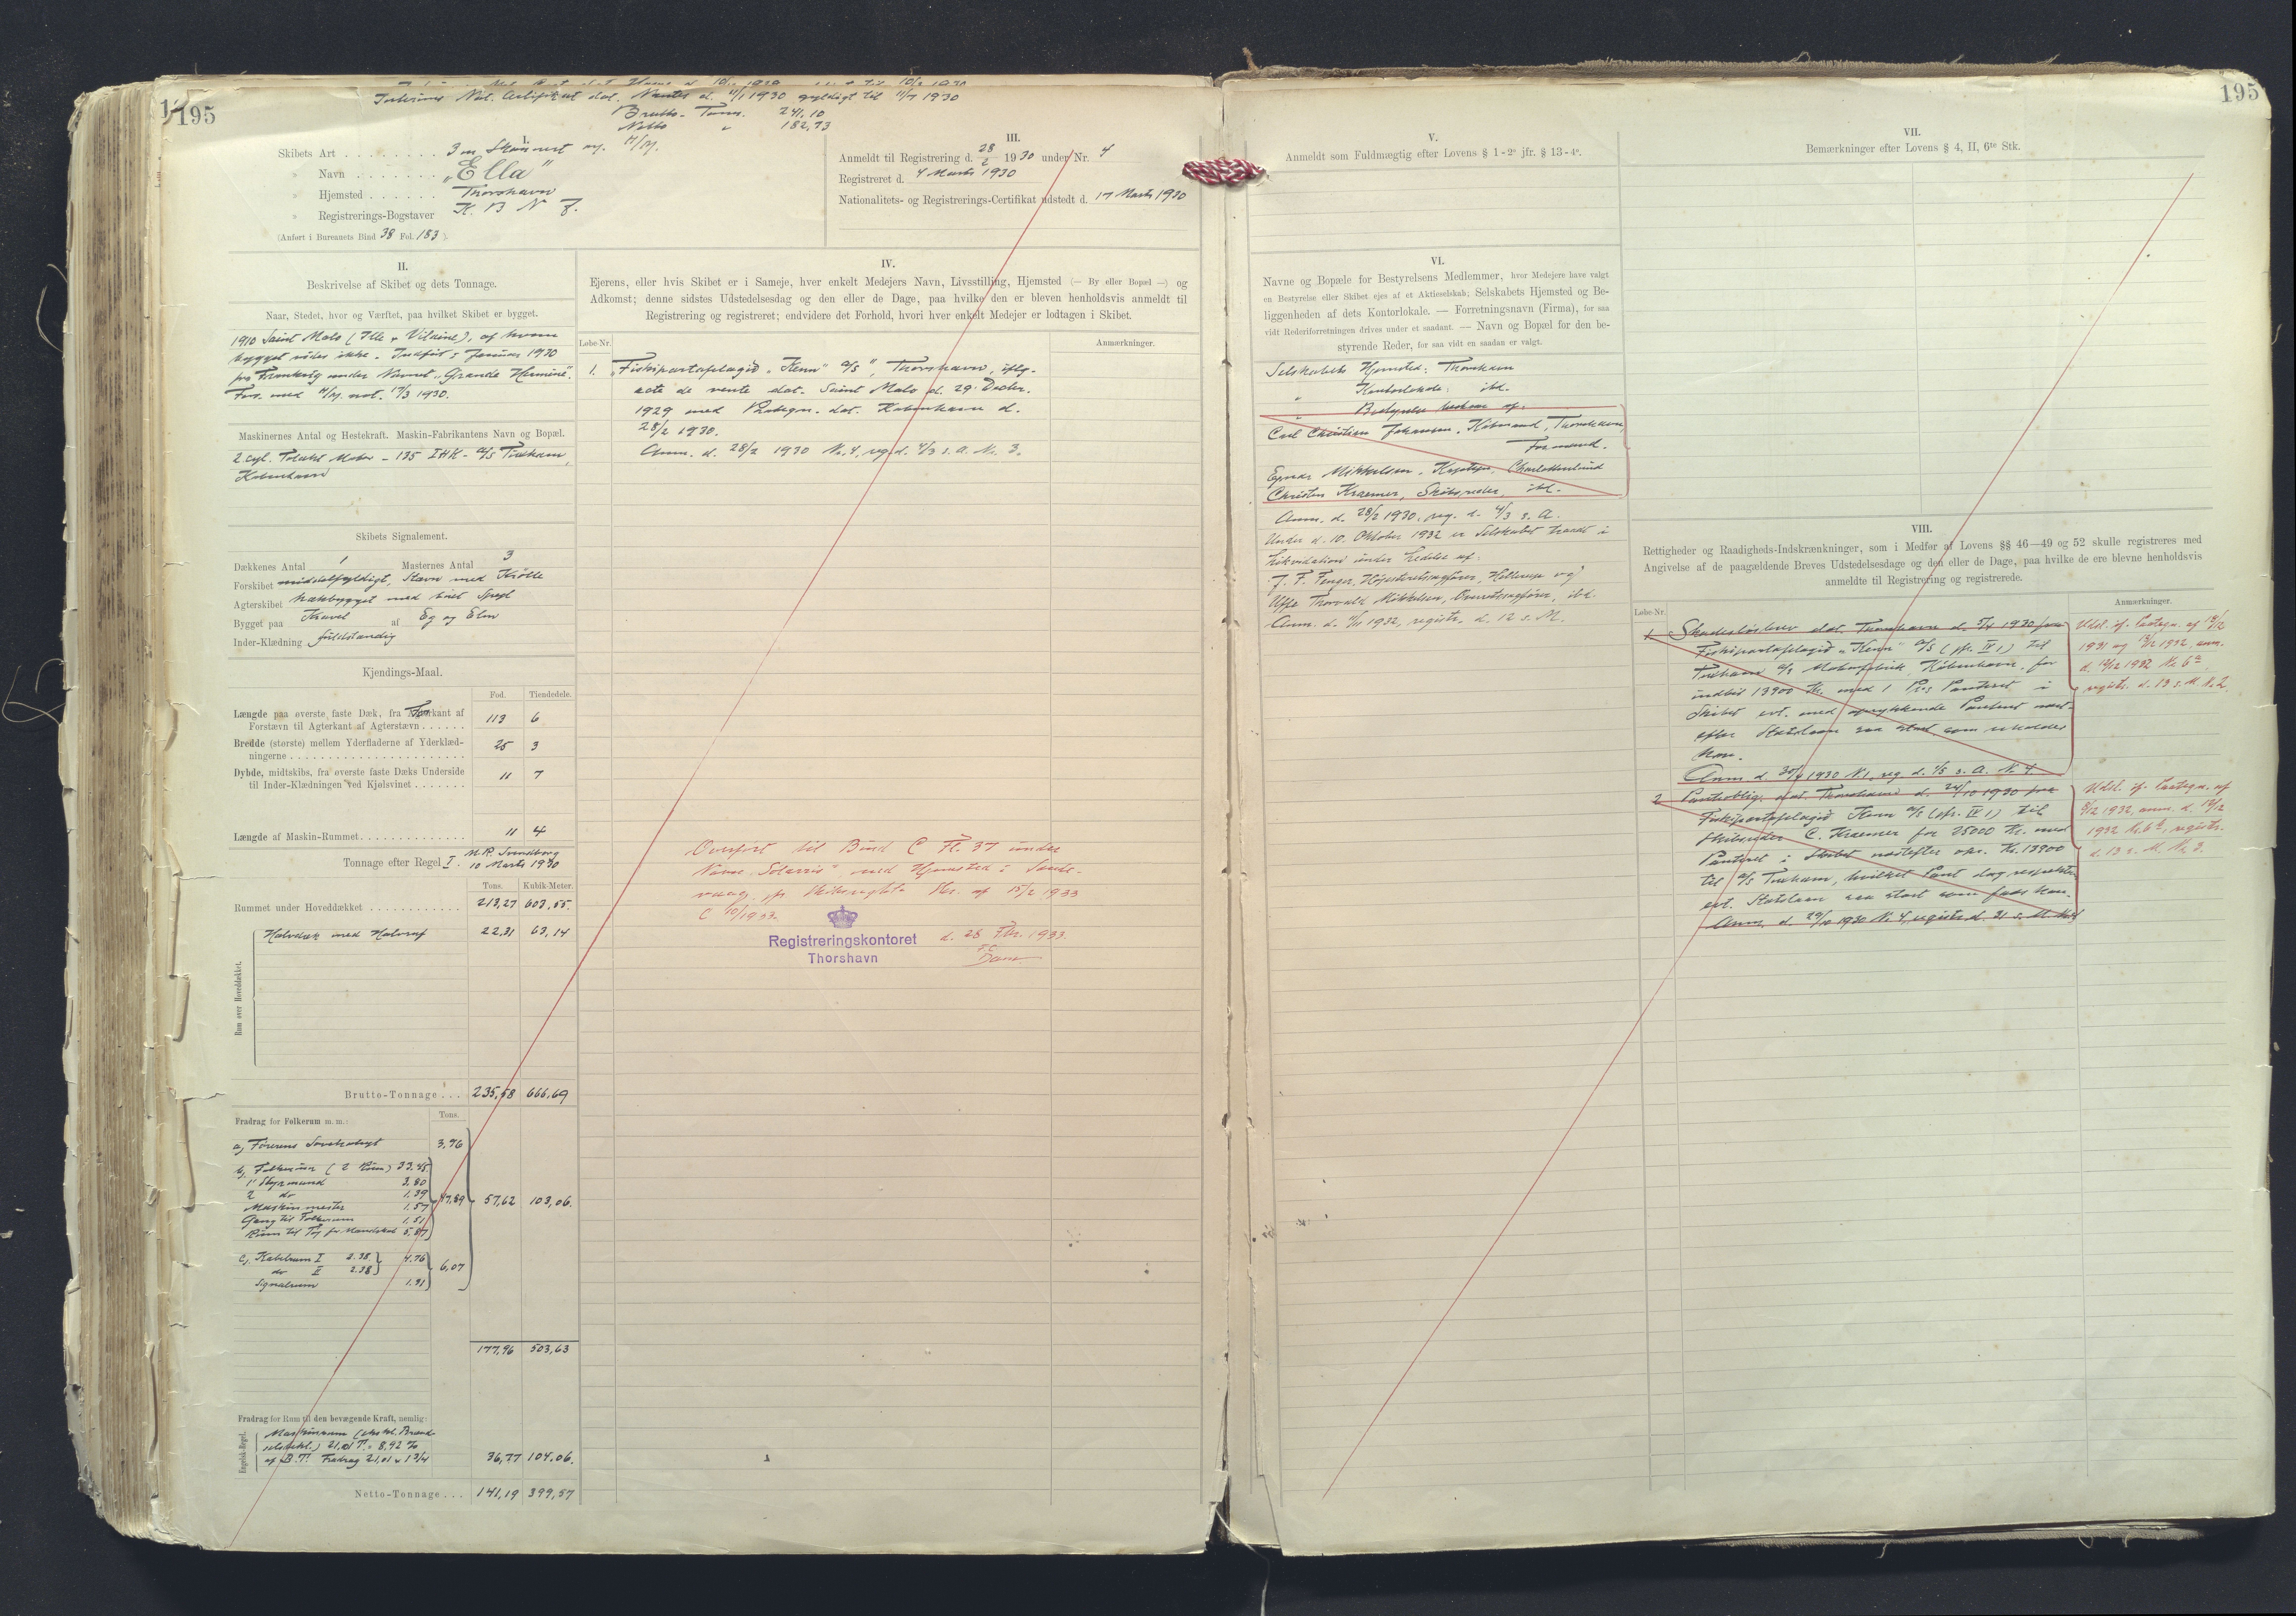 195
Interims Nat. Certifikat dat. Nantes d. 11/1 1930 gyldigt til 11/7 1930
Brutto-Tons. 241,10
Netto " 182,73
I.
Skibets Art . . . . . . . . 3 m Skonnert m. M/M.
» Navn . . . . . . . „Ella"
» Hjemsted . . . . . . Thorshavn
» Registrerings-Bogstaver
(Anført i Bureauets Bind 38 Fol. 183 ).
III.
Anmeldt til Registrering d. 28/2 1930 under Nr. 4
Registreret d. 4 Marts 1930
Nationalitets- og Registrerings-Certifikat udstedt d. 17 Marts 1930
II.
Beskrivelse af Skibet og dets Tonnage.
Naar, Stedet, hvor og Værftet, paa hvilket Skibet er bygget.
1910 Saint Malo (Ille & Vilaine), af hvem
bygget vides ikke. Indført i Januar 1930
fra Frankrig under Navnet „Grande Hermine".
Maskinernes Antal og Hestekraft. Maskin-Fabrikantens Navn og Bopæl.
2 cyl. Totakt Motor - 135 IHK - A/S Tuxham,
København
Skibets Signalement.
Dækkenes Antal 1 Masternes Antal 3
Forskibet middelfyldigt, Stævn med Krølle
Agterskibet hækbygget med Spejl
Bygget paa Kravel af Eg og Elm
Inder-Klædning fuldstændig
Kjendings-Maal.
Fod. Tiendedele.
Længde paa øverste faste Dæk, fra Forkant af
Forstævn til Agterkant af Agterstævn . . . . . . 113 6
Bredde (største) mellem Yderfladerne af Yderklæd-
ningerne . . . . . . 25 3
Dybde, midtskibs, fra øverste faste Dæks Underside
til Inder-Klædningen ved Kjølsvinet . . . . . . . 11 7
Længde af Maskin-Rummet . . . . . . 11 4
Tonnage efter Regel I. M.R. Svendborg
10 Marts 1930
Tons. Kubik-Meter.
Rummet under Hoveddækket . . . . . . 213,27 603,55.
Rum over Hoveddækket.
Halvdæk med Halvruf 22,31 63,14
Brutto-Tonnage . . . 235,58 666,69
Fradrag for Folkerum m. m.: Tons.
a) Førerens Sovekahyt 3,76
b) Folkerum (2 Rum) 33,45
1' Styrmand 3,80
2 do 1,39
Maskinmester 1,57
Gang til Folkerum 1,51
Rum til Tøj for Mandskab
57,62 103,06.
c) Kabelrum I 2.38 4.76
do II 2.38 6,07
Signalrum 1.31
177,96 503,63
Fradrag for Rum til den bevægende Kraft, nemlig:
Engelsk-Regel.
Maskinrum
21,01 T. = 8,92 %
af B.T. Fradrag 21,01 x 1 3/4 36,77 104,06.
Netto-Tonnage . . . 141,19 399,57
IV.
Ejerens, eller hvis Skibet er i Sameje, hver enkelt Medejers Navn, Livsstilling, Hjemsted (— By eller Bopæl —) og
Adkomst; denne sidstes Udstedelsesdag og den eller de Dage, paa hvilke den er bleven henholdsvis anmeldt til
Registrering og registreret; endvidere det Forhold, hvori hver enkelt Medejer er lodtagen i Skibet.
Løbe-Nr. Anmærkninger.
1. „Fiskipartafelagið „Kenn" A/S", Thorshavn, iflg.
acte de vente dat. Saint Malo d. 29. Decbr.
1929 med Paategn. dat. København d.
28/2 1930.
Anm. d. 28/2 1930 No. 4, reg. d. 4/3 s. A. No. 3.
Overført til Bind C Fl. 37 under
Navn med Hjemsted i Sands-
vaag, 15/2 1933
Registreringskontoret
Thorshavn
d. 28 Fbr. 1933.
195
V.
Anmeldt som Fuldmægtig efter Lovens § 1-2° jfr. § 13-4°.
VI.
Navne og Bopæle for Bestyrelsens Medlemmer, hvor Medejere have valgt
en Bestyrelse eller Skibet ejes af et Aktieselskab; Selskabets Hjemsted og Be-
liggenheden af dets Kontorlokale. — Forretningsnavn (Firma), for saa
vidt Rederiforretningen drives under et saadant. — Navn og Bopæl for den be-
styrende Reder, for saa vidt en saadan er valgt.
Selskabets Hjemsted: Thorshavn
" Kontorlokale: ibd.
" Bestyrelse bestaar af:
Carl Christian Johansen, Købmand, Thorshavn,
Formand.
Ejnar Mikkelsen, Kaptajn, Charlottenlund
Christen Kraemer, Skibsreder, ibd.
Anm. d. 28/2 1930, reg. d. 4/3 s. A.
Under d. 10. Oktober 1932 er Selskabet traadt i
Likvidation under Ledelse af:
J. F. Fenger, Højesteretssagfører, Hellerup og
Uffe Thorvald Mikkelsen, Overretssagfører, ibd.
Anm. d. 11/11 1932, registr. d. 12 s. M.
VII.
Bemærkninger efter Lovens § 4, II, 6te Stk.
VIII.
Rettigheder og Raadigheds-Indskrænkninger, som i Medfør af Lovens §§ 46—49 og 52 skulle registreres med
Angivelse af de paagældende Breves Udstedelsesdage og den eller de Dage, paa hvilke de ere blevne henholdsvis
anmeldte til Registrering og registrerede.
Løbe-Nr. Anmærkninger.
1 Skadesløsbrev dat. Thorshavn d. 5/4 1930 fra
Fiskipartafelagið „Kenn" A/S (jfr. IV 1) til
Tuxham A/S Motorfabrik, København, for
indtil 13900 Kr. med 1 Pros Panteret i
Skibet evt. med oprykkende Panteret næst-
efter Statslaan saa stort som
Anm d. 30/4 1930 N 1, reg d. 1/5 s. A. No 4.
Udsl. if. Paategn. af
1931 og 1932, anm.
d. 12/12 1932 No 6a,
registr. d. 13 s. M. No 2
2 Panteoblig. dat. Thorshavn d. 24/10 1930 fra
Fiskipartafelagið Kenn A/S (jfr. IV 1) til
Skibsreder C. Kraemer for 25000 Kr. med
Panteret i Skibet næstefter opr. Kr. 13900
til A/S Tuxham, hvilket Pant dog respekterer
evt. Statslaan saa stort som faas kan.
Anm. d. 29/10 1930 No 4, registr. d. 31 s. M.
Udsl. if. Paategn. af
1932, anm. d. 12/12
1932 No 6b, registr.
d. 13 s. M. No 3.